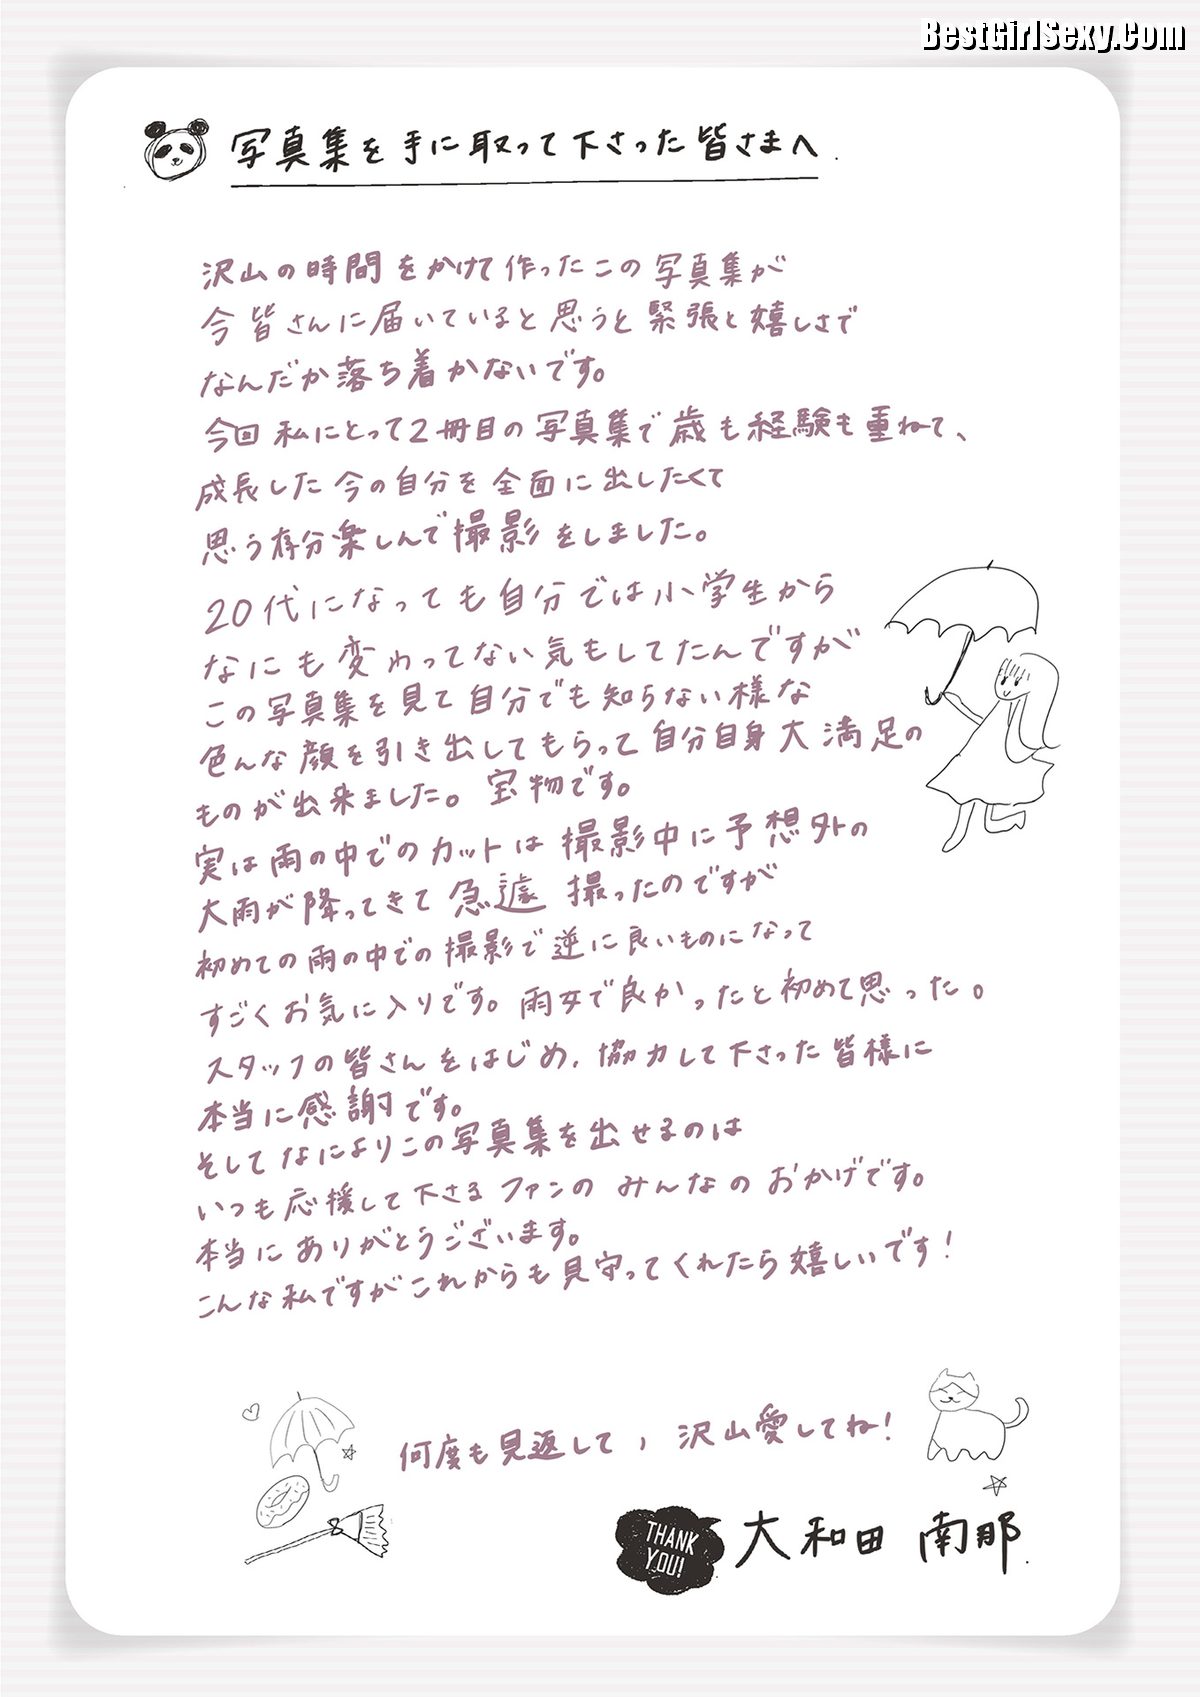 BestGirlSexy.Com
写真集を手に取って下さった皆さまへ
沢山の時間をかけて作ったこの写真集が
今皆さんに届いていると思うと緊張と嬉しさで
なんだか落ち着かないです。
今回私にとって2冊目の写真集で歳も経験も重ねて、
成長した今の自分を全面に出したくて
思う存分楽しんで撮影をしました。
20代になっても自分では小学生から
なにも変わってない気もしてたんですが
この写真集を見て自分でも知らない様な
色んな顔を引き出してもらって自分自身大満足の
ものが出来ました。宝物です。
実は雨の中でのカットは撮影中に予想外の
大雨が降ってきて急遽撮ったのですが
初めての雨の中での撮影で逆に良いものになって
すごくお気に入りです。雨女で良かったと初めて思った。
スタッフの皆さんをはじめ、協力して下さった皆様に
本当に感謝です。
そしてなによりこの写真集を出せるのは
いつも応援して下さるファンのみんなのおかげです。
本当にありがとうございます。
こんな私ですがこれからも見守ってくれたら嬉しいです!
何度も見返して、沢山愛してね!
THANK
YOU!
大和田 南那